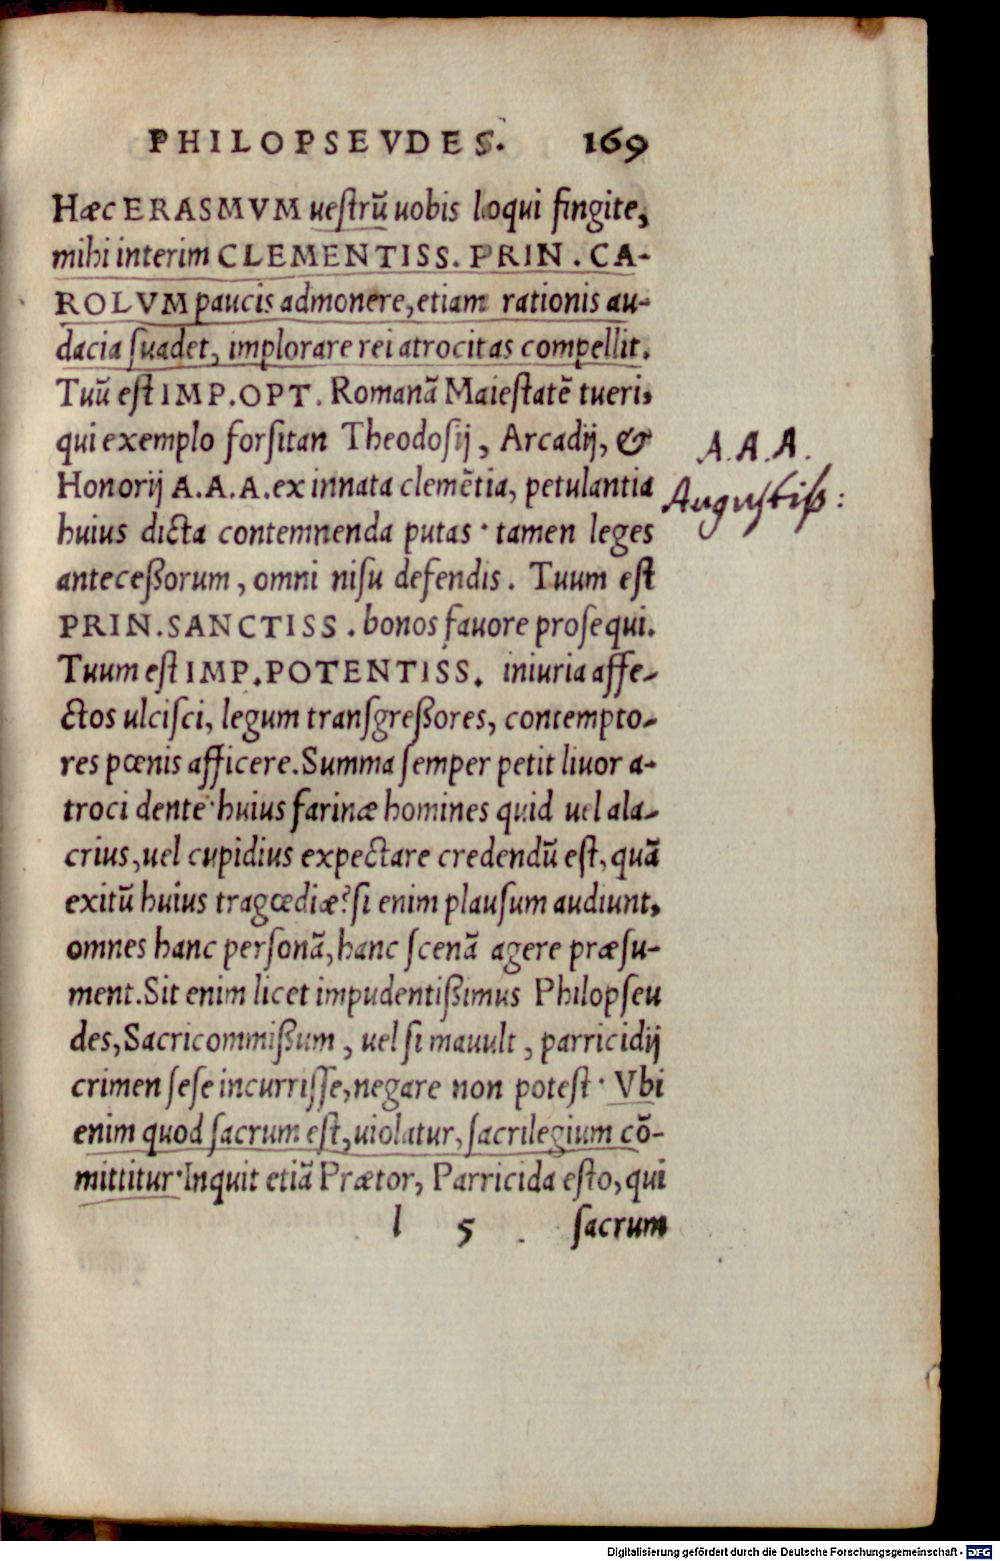 PHILOPSEVDES. 169
Hæc ERASMVM uestrũ uobis loqui fingite,
mihi interim CLEMENTISS. PRIN. CA-
ROLVM paucis admonere, etiam rationis au-
dacia ſuadet, implorare rei atrocitas compellit.
Tuũ eſt IMP. OPT. Romanã Maieſtatẽ tueri,
qui exemplo forſitan Theodoſij, Arcadij, &
Honorij A.A.A. ex innata clemẽtia, petulantia
huius dicta contemnenda putas · tamen leges
anteceßorum, omni niſu defendis. Tuum eſt
PRIN. SANCTISS. bonos fauore proſequi.
Tuum eſt IMP. POTENTISS. iniuria affe-
ctos ulciſci, legum tranſgreßores, contempto-
res pœnis afficere. Summa ſemper petit liuor a-
troci dente · huius farinæ homines quid uel ala-
crius, uel cupidius expectare credendũ eſt, quã
exitũ huius tragœdiæ? ſi enim plauſum audiunt,
omnes hanc perſonã, hanc ſcenã agere præſu-
ment. Sit enim licet impudentißimus Philopſeu
des, Sacricommißum, uel ſi mauult, parricidij
crimen ſeſe incurriſſe, negare non poteſt · Vbi
enim quod ſacrum eſt, uiolatur, ſacrilegium cõ-
mittitur · Inquit etiã Prætor, Parricida eſto, qui
l 5 ſacrum
A. A. A.
Auguſtiß:
Digitalisierung gefördert durch die Deutsche Forschungsgemeinschaft - DFG